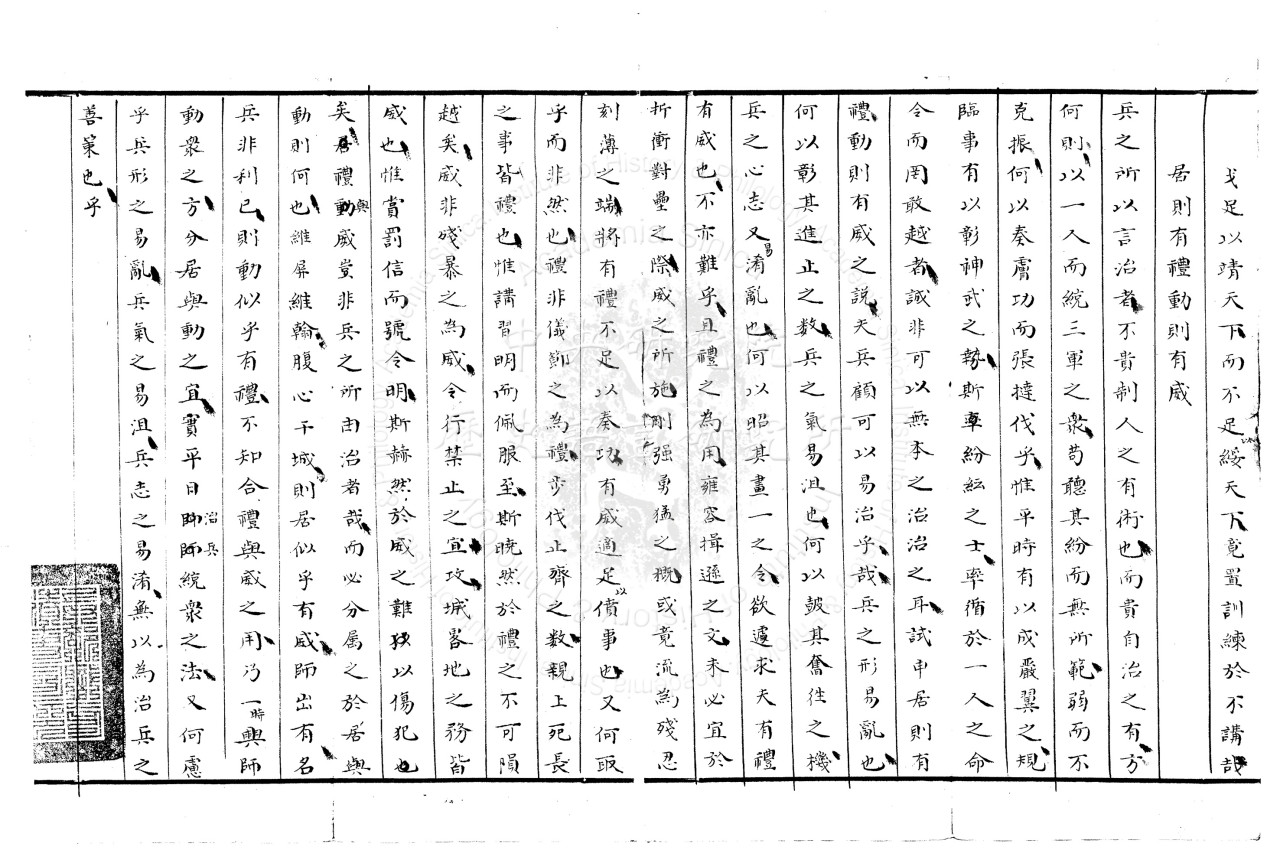 戈足以靖天下而不足以綏天下竟置訓練於不講哉
居則有禮動則有威
兵之所以言治者不貴制人之有術也而貴自治之有方
何則以一人而統三軍之衆苟聽其紛而無所範弱而不
克振何以奏膚功而張撻伐乎惟平時有以成嚴翼之規
臨事有以彰神武之勢斯車紛紜之士率循於一人之命
令而罔敢越者誠非可以無本之治治之耳試申居則有
禮動則有威之說夫兵顧可以易治乎哉兵之形易亂也
何以彰其進止之數兵之氣易沮也何以鼓其奮往之機
兵之心志又易淆亂也何以昭其畫一之令欲遽求夫有禮
有威也不亦難乎且禮之為用雍容揖遜之文未必宜於
折衝對壘之際威之所施剛强勇猛之概或竟流為殘忍
刻薄之端將有禮不足以奏功有威適足以僨事也又何取
乎而非然也禮非儀節之為禮步伐止齊之數親上死長
之事皆禮也惟講習明而佩服至斯曉然於禮之不可隕
越矣威非殘暴之為威令行禁止之宜攻城畧地之務皆
威也惟賞罰信而號令明斯赫然於威之難以傷犯也
矣居禮與動威豈非兵之所由治者哉而必分属之於居與
動則何也維屏維翰腹心干城則居似乎有威師出有名
兵非利已則動似乎有禮不知合禮與威之用乃一時興師
動衆之方分居與動之宜實平日治兵師統衆之法又何慮
乎兵形之易亂兵氣之易沮兵志之易淆無以為治兵之
善策也乎